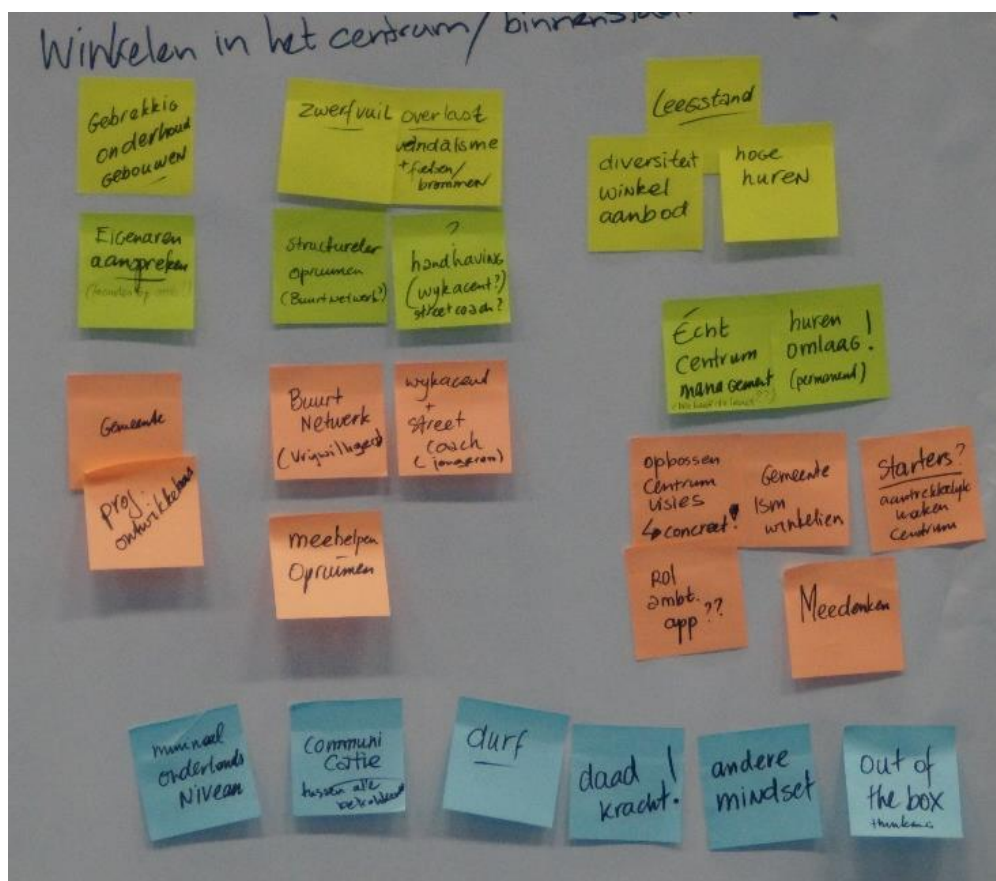 Winkelen in het centrum/
Gebrekkig
onderhoud
gebouwen
zwerfvuil
overlast
vandalisme
+ fietsen/
brommen
Leegstand
diversiteit
winkel
aanbod
hoge
huren
Eigenaren
aanspreken
structureler
opruimen
(Buurtnetwerk?)
?
handhaving
(wykagent?)
streetcoach?
Écht
centrum
management
huren
omlaag!
(permanent)
Gemeente
proj.
ontwikkelaars
Buurt
Netwerk
(Vrijwilligers)
wykagent
+
street
coach
(jongeren)
meehelpen
opruimen
opbossen
centrum
visies
↳ concreet!
Gemeente
ism
winkelien
Starters?
aantrekkelijk
maken
centrum
Rol
ambt.
app??
Meedenken
minimaal
onderhouds
Niveau
Communi
catie
tussen alle
betrokkenen
durf
daad
kracht!
andere
mindset
out of
the box
thinking